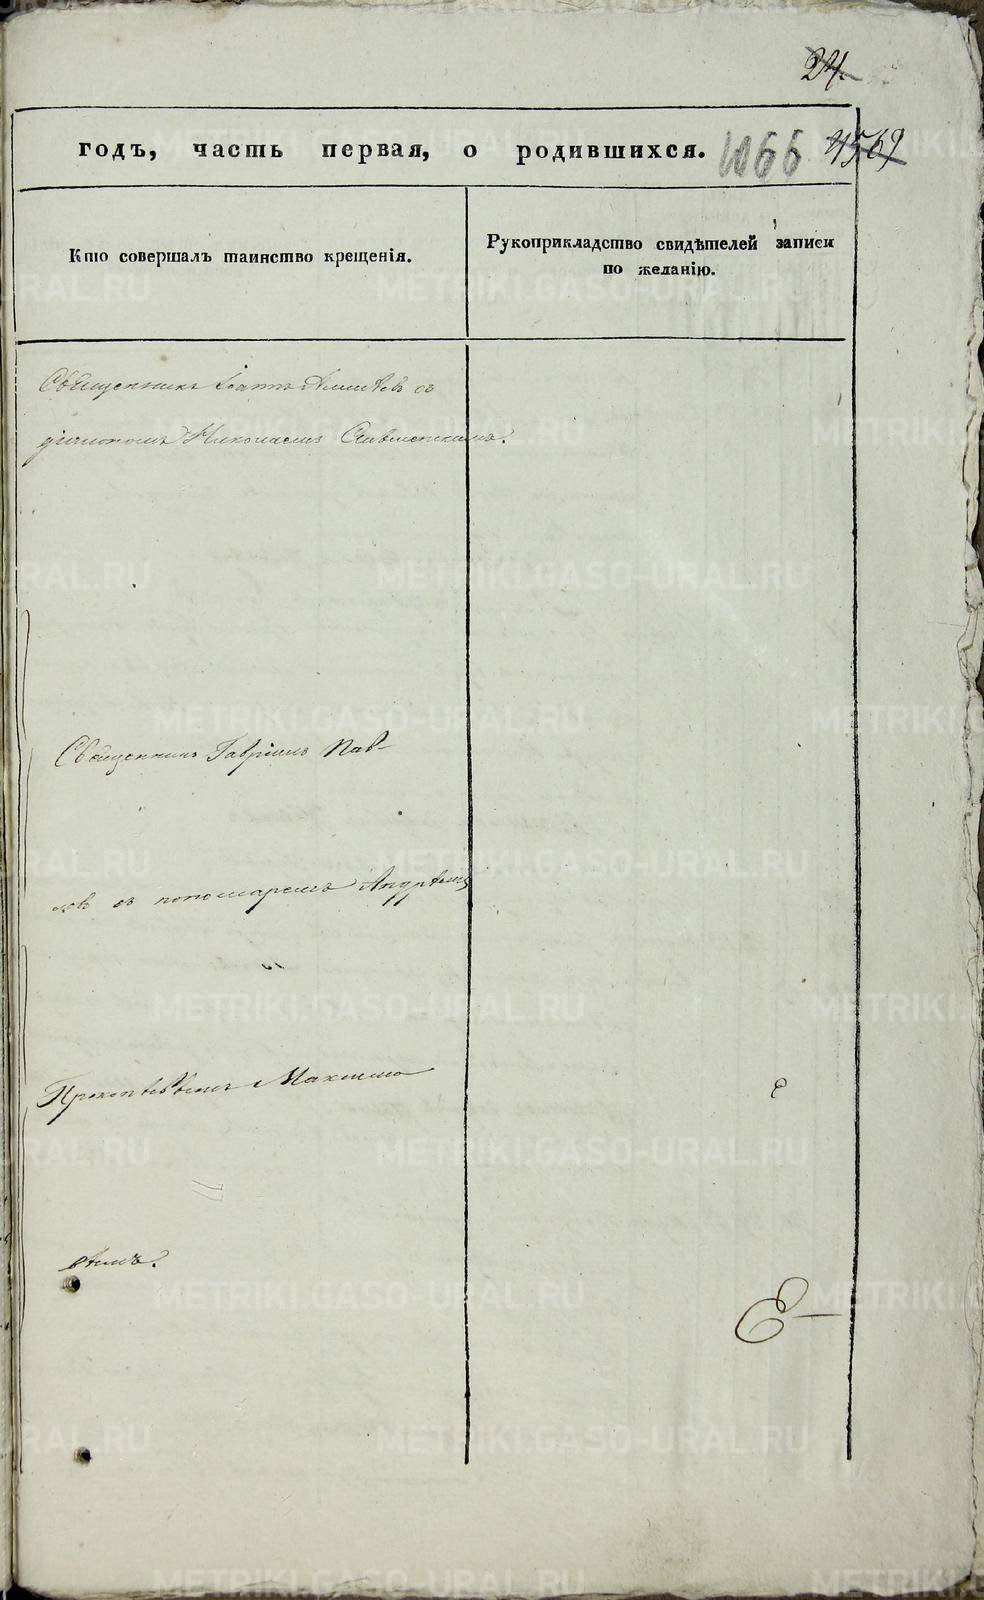 24.
годъ, часть первая, о родившихся. 1066 4569
Кто совершалъ таинство крещенія.
Рукоприкладство свидѣтелей записи
по желанію.
Священникъ Іоаннъ съ
діакономъ Николаемъ
Священникъ Гавріилъ Пав-
ловъ съ пономаремъ Андреемъ
Прокопьевымъ Максимо
вымъ.
METRIKI.GASO-URAL.RU